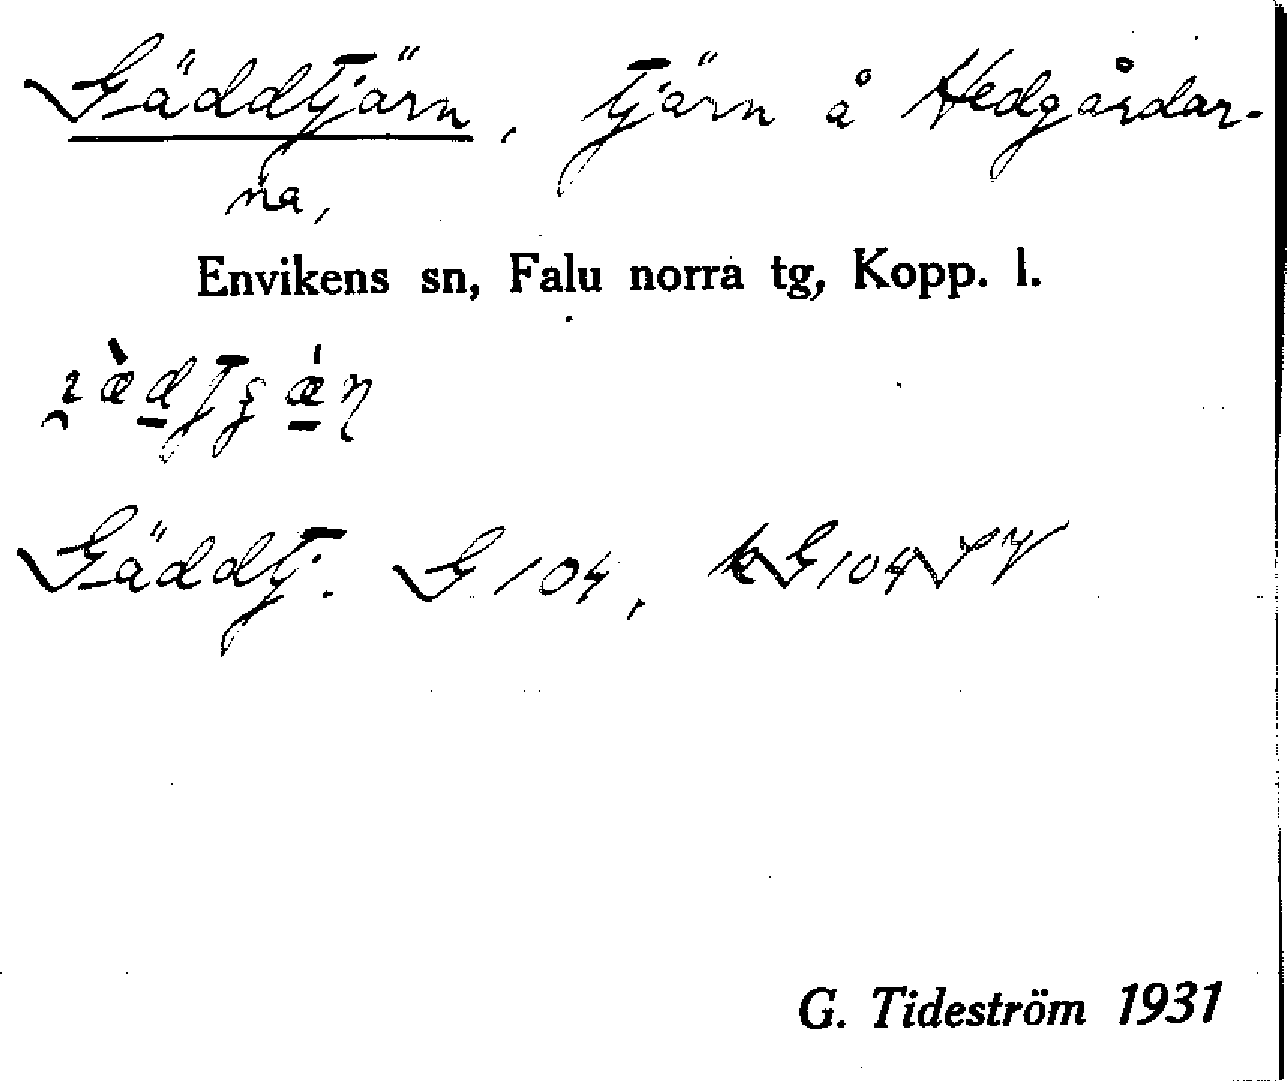 Gäddtjärn, tjärn å Hedgårdar-
na,
Envikens sn, Falu norra tg, Kopp. l.
Gäddtj. G 104, kG 104
G. Tideström 1931